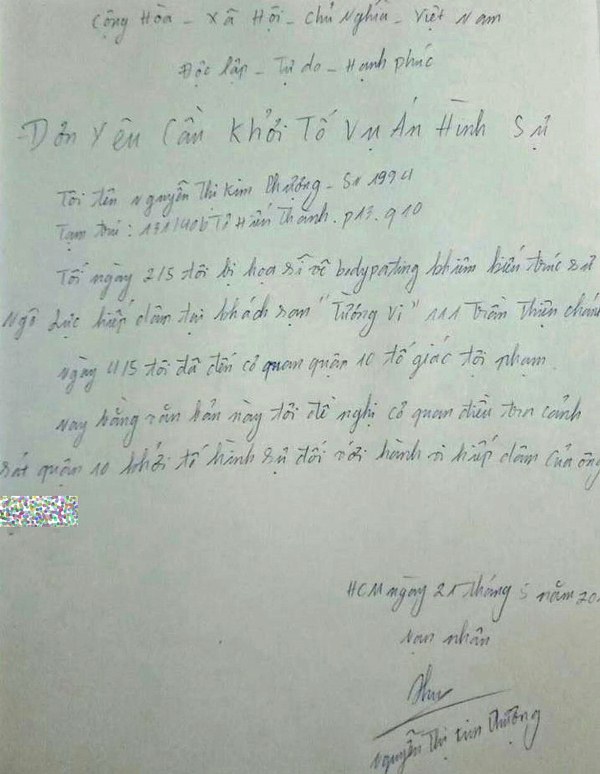 Cộng Hòa - Xã Hội - Chủ Nghĩa - Việt Nam
Độc lập - Tự do - Hạnh phúc
-Đơn Yêu Cầu Khởi Tố Vụ Án Hình Sự
Tôi tên Nguyễn Thị Kim Phượng - SN 1994
Tạm trú: Tô Hiến Thành. p13. q10
Tối ngày 2/5 tôi bị họa sĩ vẽ bodypating kiêm kiến trúc sư
Ngô Lực hiếp dâm tại khách sạn "Tường Vi" 111 Trần Thiện chánh
ngày 4/5 tôi đã đến cơ quan quận 10 tố giác tội phạm.
Nay bằng văn bản này tôi đề nghị cơ quan điều tra cảnh
sát quận 10 khởi tố hình sự đối với hành vi hiếp dâm của ông
HCM ngày tháng 5 năm 20
nạn nhân
Nguyễn Thị Kim Phượng